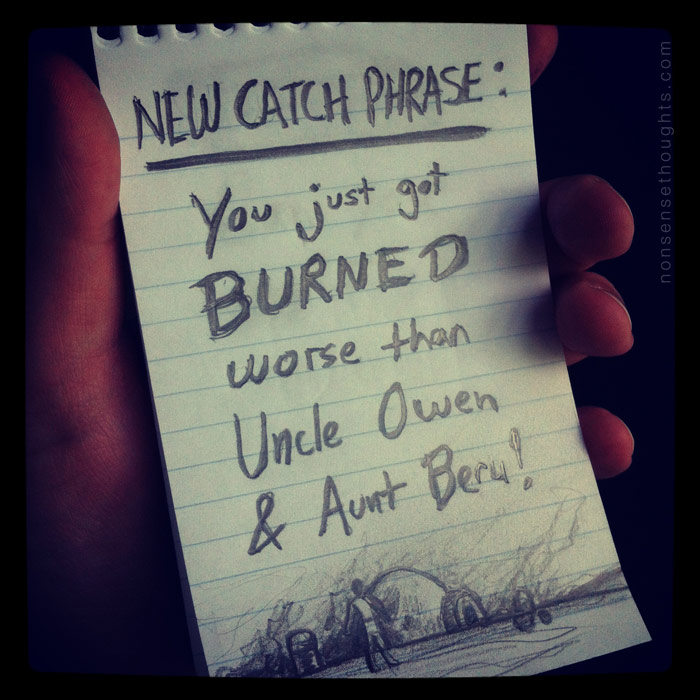 NEW CATCH PHRASE:
You just got
BURNED
worse than
Uncle Owen
& Aunt Beru!
nonsensethoughts.com